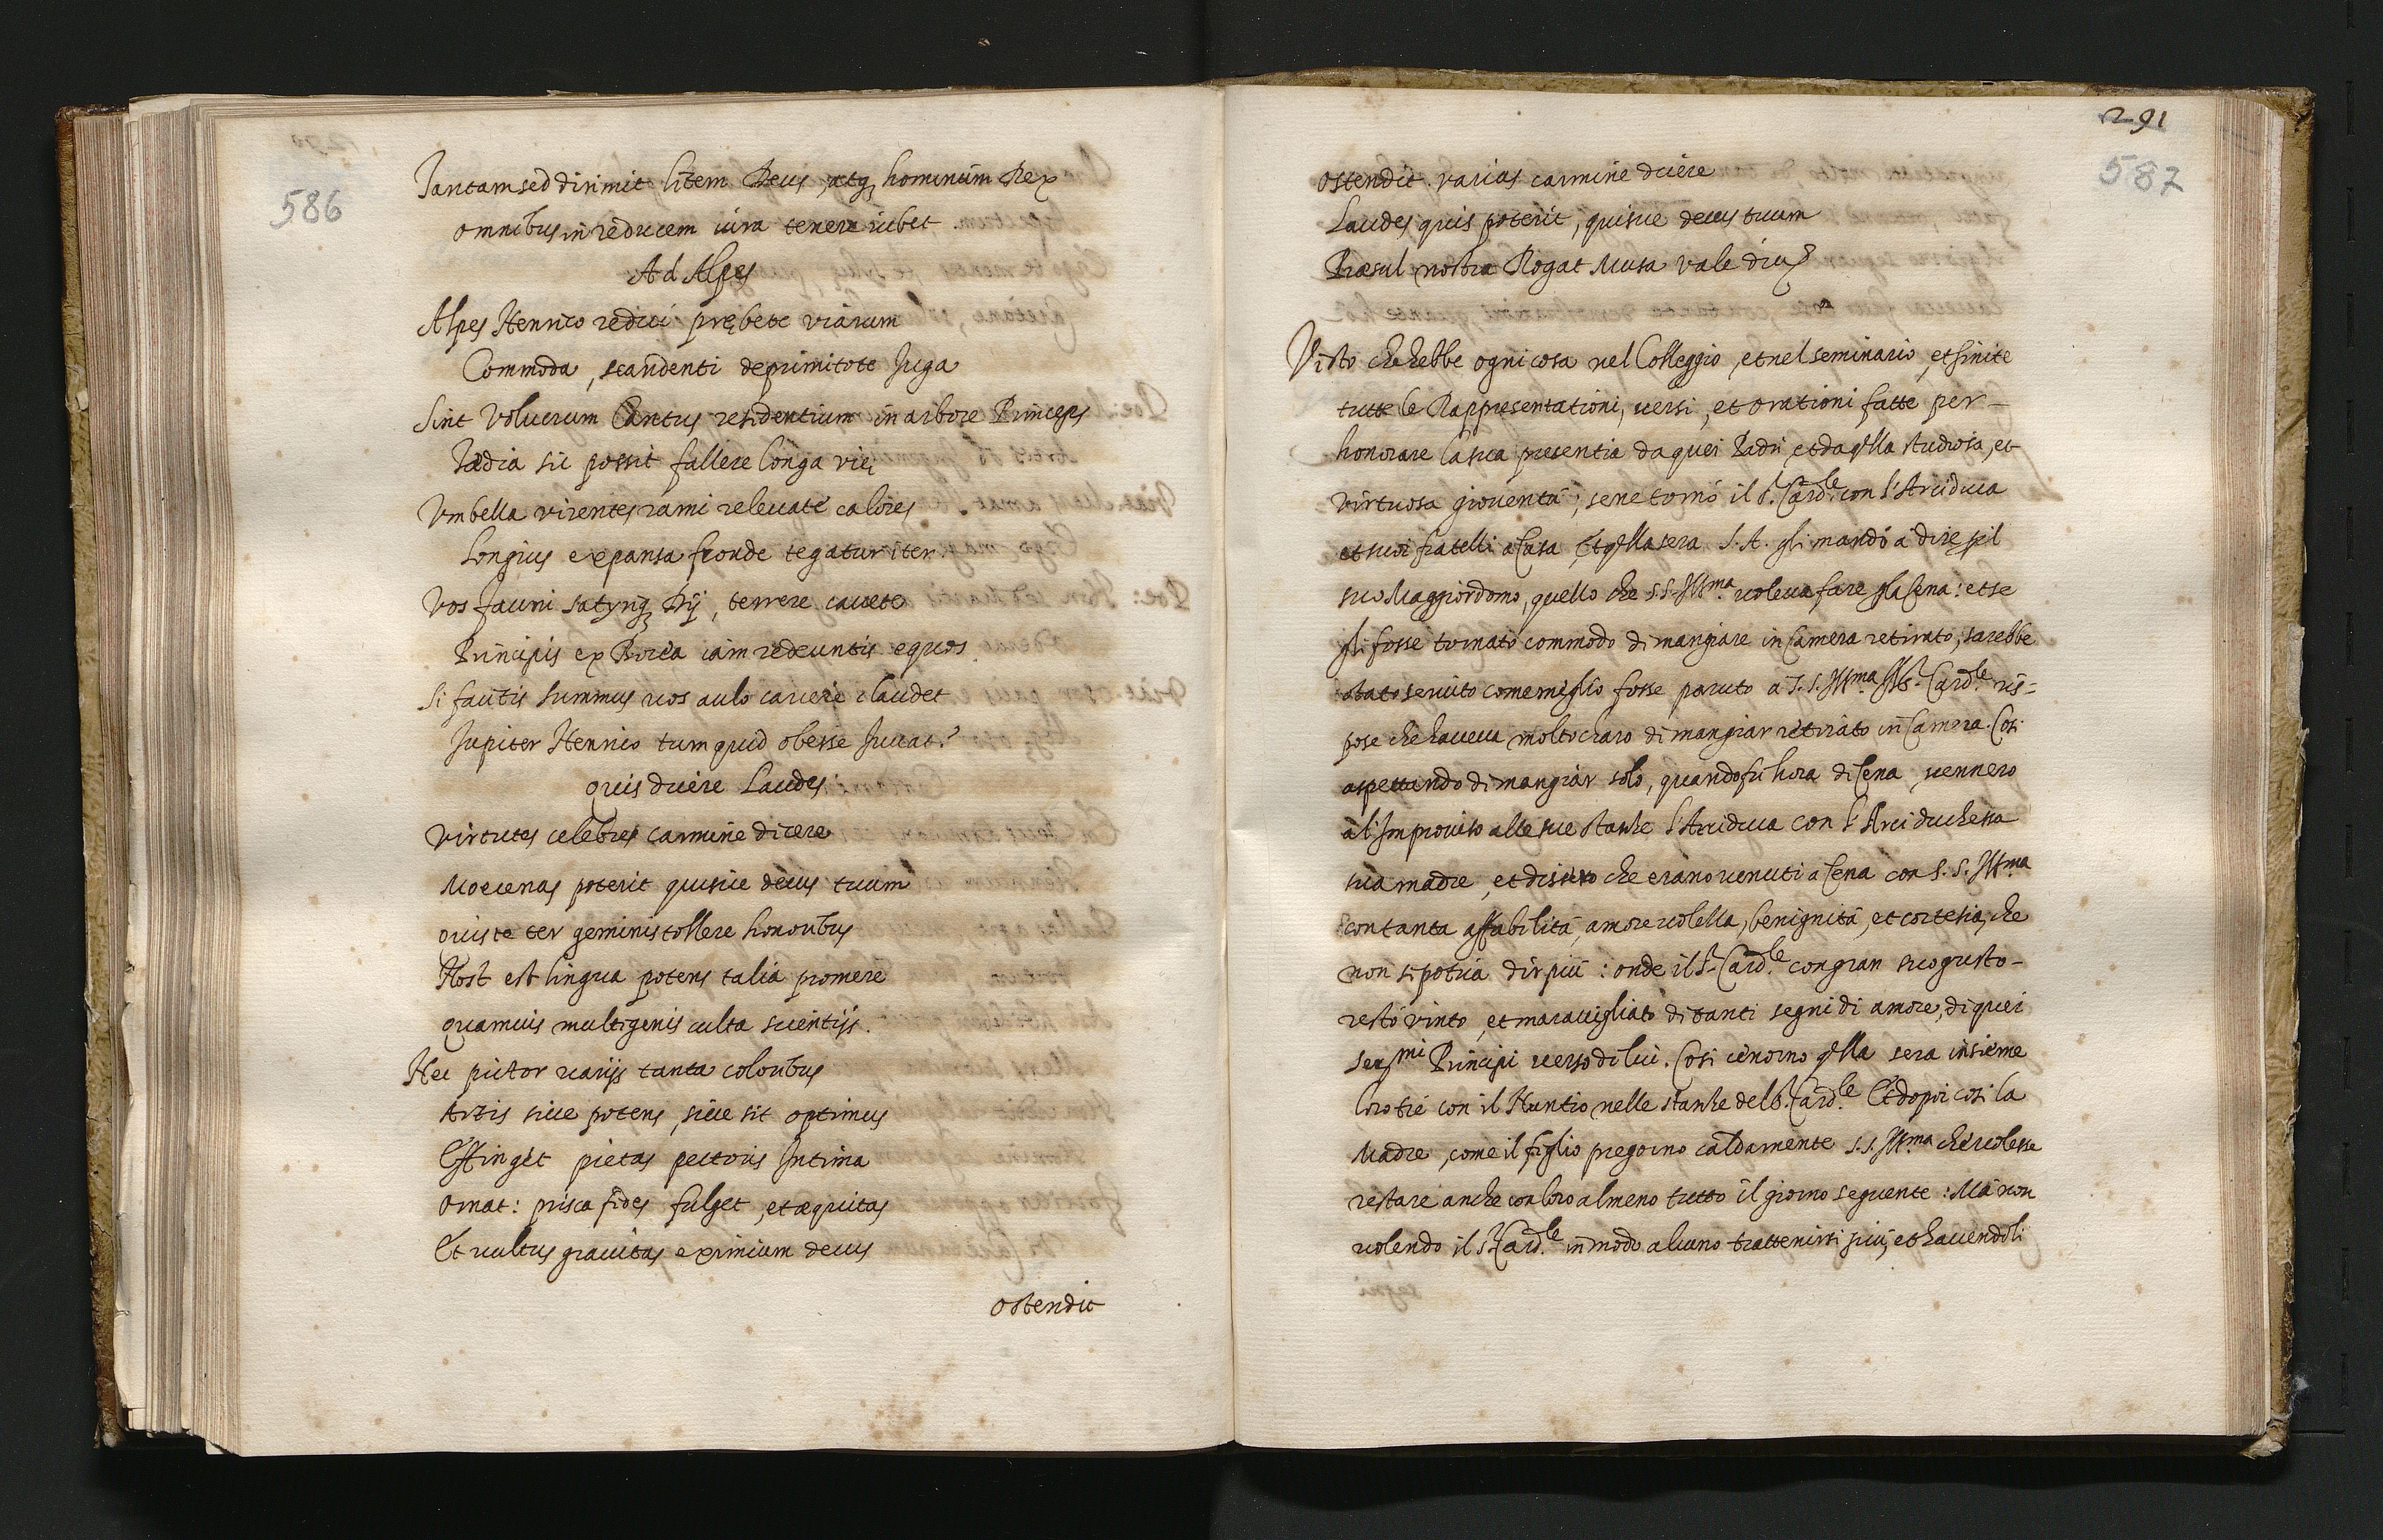 586
Tantam sed dirimit litem Deus, atq hominum Rex
omnibus in reducem iura tenere iubet.
Ad Alpes
Alpes Henrico reduci prębete viarum
Commoda, scandenti deprimitote Juga
Sint Volucrum Cantus residentium in arbore Princeps
Tædia sic possit fallere longa vię
Vmbella virentes rami releuate calores
Longius expansa fronde tegatur iter.
Vos fauni satyriq Dij, terrere cauete
Principis ex Borea iam redeuntis equos.
Si fautis summus uos aulo carcere claudet
Jupiter Henrico tum quid obesse Juuat?
Quis dicere Laudes
Virtutes celebres carmine dicere
Moecenas poterit quisue decus tuum
Quis te ter geminis tollere honoribus
Nost est lingua potens talia promere
Quamuis multigenis culta scientijs.
Nec pictor varijs tanta coloribus
Artis siue potens, siue sit optimus
Effinget pietas pectoris Jntima
Ornat: prisca fides fulget, et æquitas
Et uultus grauitas eximium decus
ostendit
291
587
ostendit varias carmine dicere
Laudes quis poterit, quisue decus tuum
Præsul nostra Rogat Musa vale diu
Visto che hebbe ogni cosa nel Colleggio, et nel seminario, et finite
tutte le Rappresentationi, uersi, et orationi fatte per
honorare la sua presentia da quei Padri, et da qlla studiosa, et
virtuosa giouentù; se ne tornò il S.r Card.le con l'Arciduca
et suoi fratelli a Casa, Et qlla sera S. A. gli mandò a dire p il
suo Maggiordomo, quello che S.S. Ill.ma uoleua fare p la Cena: et se
gli fosse tornato commodo di mangiare in Camera retirato, sarebbe
stato seruito come meglio fosse paruto a S. S. Ill.ma Il S.r Card.le ris=
pose che haueua molto charo di mangiar retirato in Camera. Cosi
aspettando di mangiar solo, quando fu hora di Cena, uennero
a l'Improuiso alle sue stanze l'Arciduca con l'Arciduchessa
sua madre, et dissero che erano uenuti a Cena con S. S. Ill.ma
con tanta affabilità, amoreuolella, benignità, et cortesia, che
non si potria dir più: onde il S.r Card.le con gran suo gusto
restò vinto, et marauigliato di tanti segni di amore, di quei
Ser.mi Principi uerso di lui. Cosi cenorno qlla sera insieme
loro tre con il Nuntio nelle stanze del S.r Card.le Et dopoi cosi la
Madre, come il figlio pregorno caldamente S. S. Ill.ma che uolesse
restare anche con loro almeno tutto il giorno seguente: Mà non
uolendo il S.r Card.le in modo alcuno trattenirsi più, et hauendoli